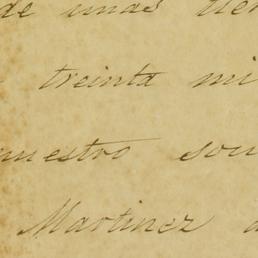 de unas tier
treinta mi
nuestro sou
Martinez a